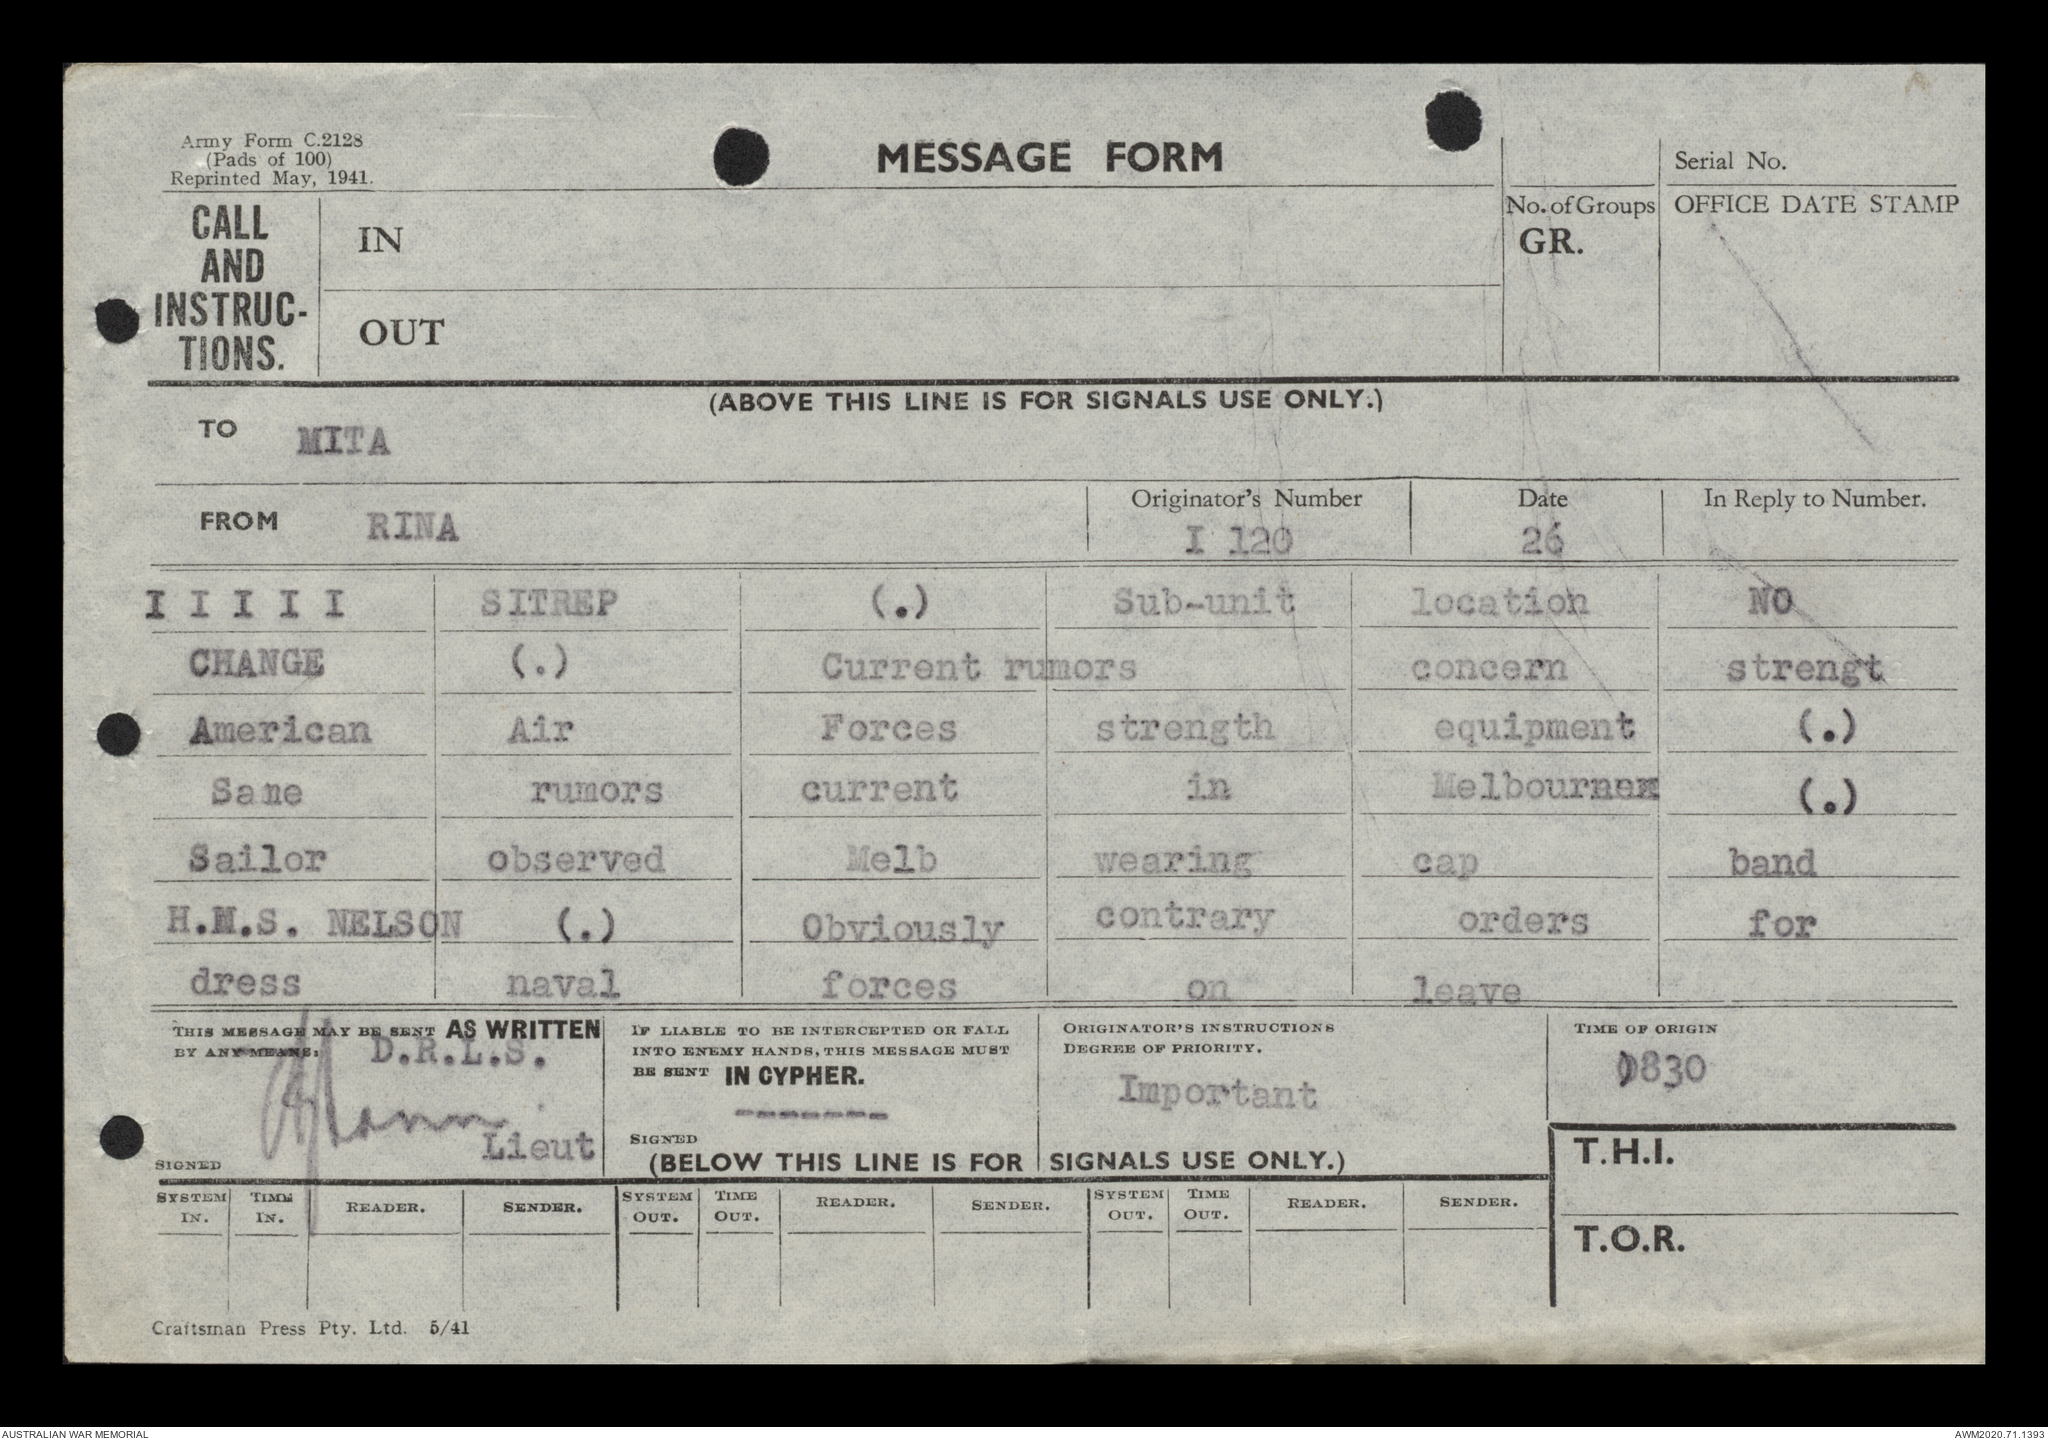 Army Form C.2128
(Pads of 100)
Reprinted May, 1941.
MESSAGE FORM
Serial No.
CALL
AND
INSTRUC-
TIONS.
IN
OUT
No. of Groups
GR.
OFFICE DATE STAMP
(ABOVE THIS LINE IS FOR SIGNALS USE ONLY.)
TO MITA
FROM RINA
Originator's Number
I 120
Date
26
In Reply to Number.
I I I I I SITREP (.) Sub-unit location NO
CHANGE (.) Current rumors concern strengt
American Air Forces strength equipment (.)
Same rumors current in Melbournex (.)
Sailor observed Melb wearing cap band
H.M.S. NELSON (.) Obviously contrary orders for
dress naval forces on leave
THIS MESSAGE MAY BE SENT AS WRITTEN
BY ANY MEANS:
D.R.L.S.
Lieut
SIGNED
IF LIABLE TO BE INTERCEPTED OR FALL
INTO ENEMY HANDS, THIS MESSAGE MUST
BE SENT IN CYPHER.
-------
SIGNED
ORIGINATOR'S INSTRUCTIONS
DEGREE OF PRIORITY.
Important
TIME OF ORIGIN
0830
(BELOW THIS LINE IS FOR SIGNALS USE ONLY.)
T.H.I.
T.O.R.
SYSTEM IN. TIME IN. READER. SENDER. SYSTEM OUT. TIME OUT. READER. SENDER. SYSTEM OUT. TIME OUT. READER. SENDER.
Craftsman Press Pty. Ltd. 5/41
AUSTRALIAN WAR MEMORIAL
AWM2020.71.1393